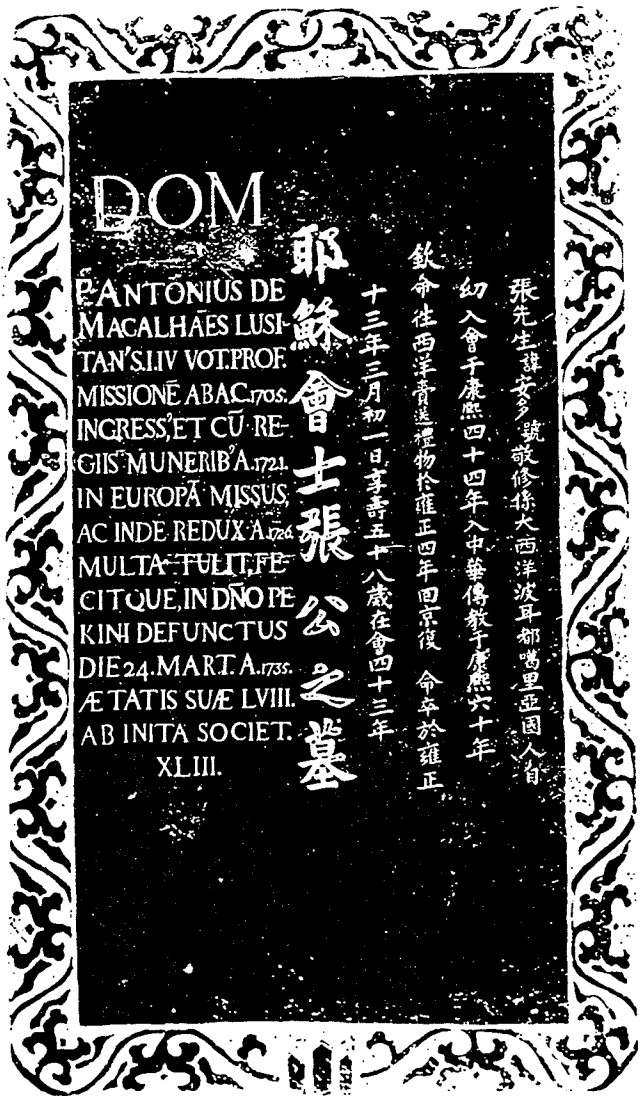 DOM
P. ANTŌNIUS DE
MACALHÃES LUSI-
TAN'S.I.IV VOT.PROF.
MISSIONĒ ABAC.1705.
INGRESS',ET CŪ RE-
GIIS MUNERIB'A.1721.
IN EUROPĀ MISSUS,
AC INDE REDUX A.1726.
MULTA TULIT,FE-
CITQUE,IN DÑO PE
KINI DEFUNCTUS
DIE 24.MART.A.1735.
ÆTATIS SUÆ LVIII.
AB INITA SOCIET.
XLIII.
耶穌會士張公之墓
張先生諱安多號敬修係大西洋波耳都噶里亞國人自
幼入會于康熙四十四年入中華傳教于康熙六十年
欽命往西洋賫送禮物於雍正四年回京復 命卒於雍正
十三年三月初一日享壽五十八歲在會四十三年